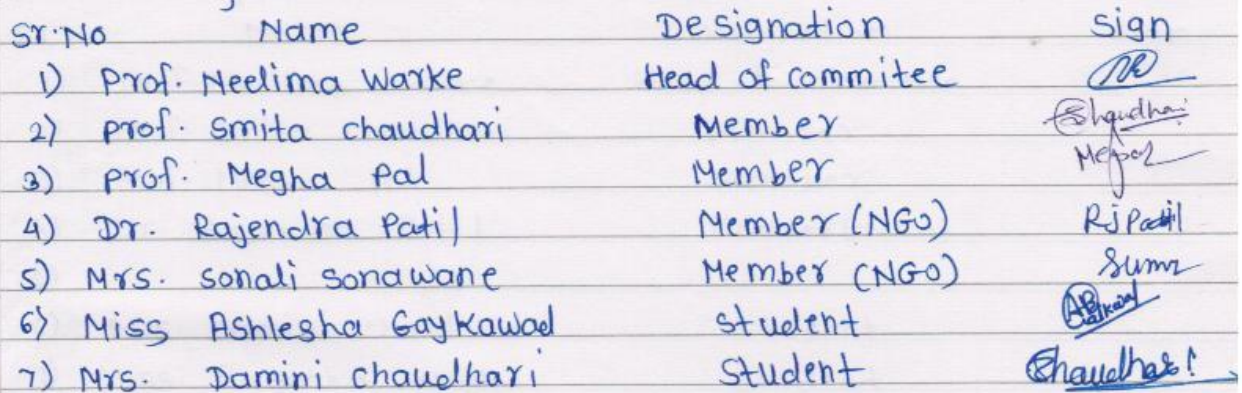 Sr.No Name Designation Sign
1) Prof. Neelima Warke Head of commitee
2) Prof. Smita chaudhari Member Chaudhari
3) Prof. Megha Pal Member Mepal
4) Dr. Rajendra Patil Member (NGO) RJPatil
5) Mrs. Sonali Sonawane Member (NGO)
6) Miss Ashlesha Gaykawad Student
7) Mrs. Damini Chaudhari Student Chaudhari